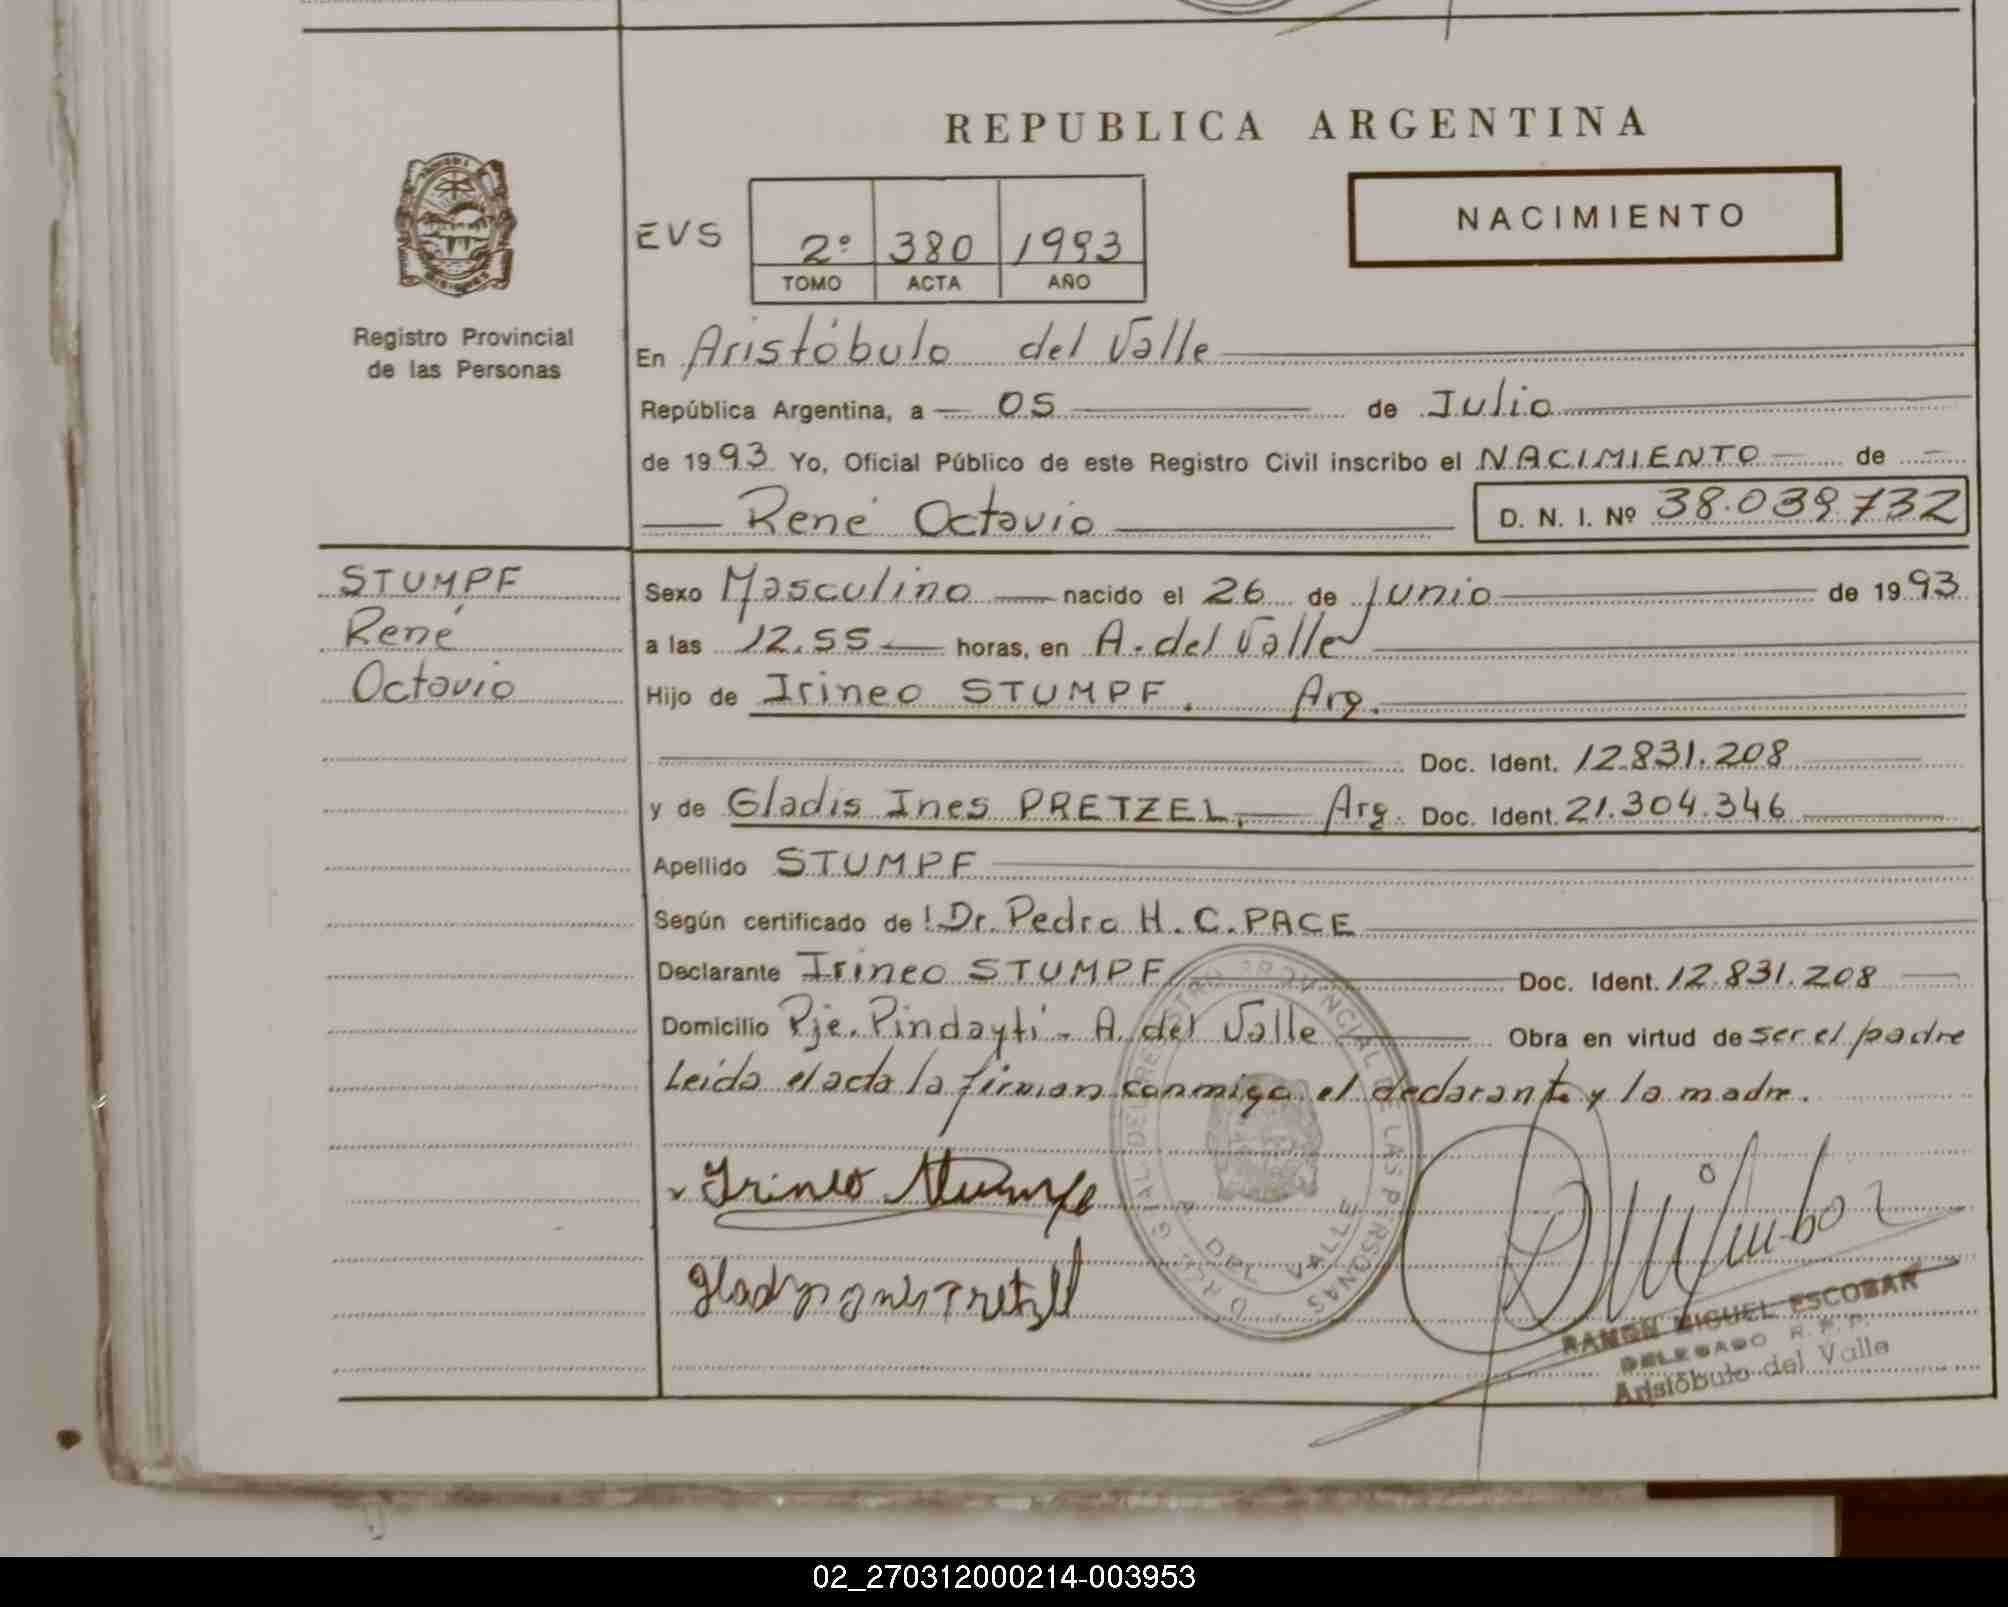 REPUBLICA ARGENTINA
NACIMIENTO
EVS 2º 380 1993
TOMO ACTA AÑO
Registro Provincial
de las Personas
En Aristóbulo del Valle
República Argentina, a 05 de Julio
de 1993 Yo, Oficial Público de este Registro Civil inscribo el NACIMIENTO de
René Octavio D. N. I. Nº 38.039.732
STUMPF
René
Octavio
Sexo Masculino nacido el 26 de Junio de 1993
a las 12.55 horas, en A. del Valle
Hijo de Irineo STUMPF. Arg.
Doc. Ident. 12.831.208
y de Gladis Ines PRETZEL. Arg. Doc. Ident. 21.304.346
Apellido STUMPF
Según certificado de ! Dr. Pedro H. C. PACE
Declarante Irineo STUMPF Doc. Ident. 12.831.208
Domicilio Pje. Pindaytí - A. del Valle Obra en virtud de ser el padre
Leída el acta la firman conmigo el declarante y la madre.
Irineo Stumpf
DEL REGISTRO PROVINCIAL DE LAS PERSONAS
A. DEL VALLE
RAMON MIGUEL ESCOBAR
DELEGADO R.P.P.
Aristóbulo del Valle
02_270312000214-003953